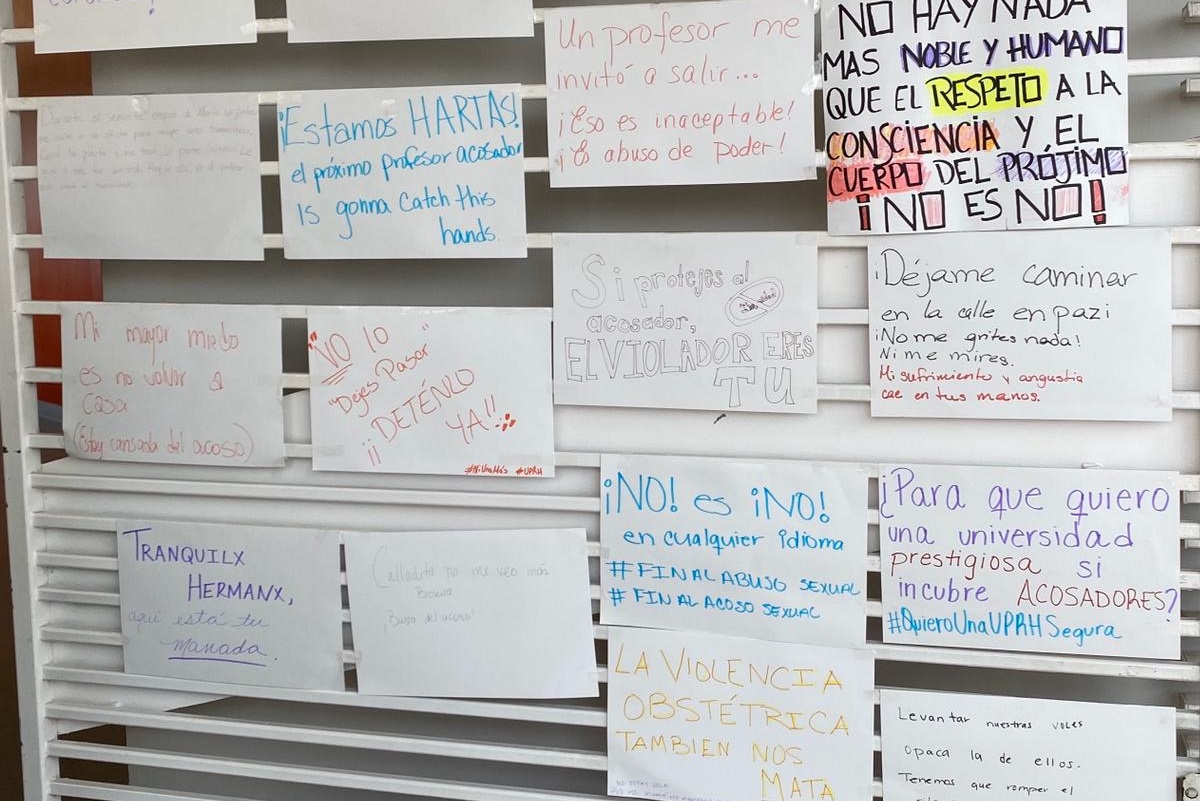 Un profesor me
invitó a salir...
¡Eso es inaceptable!
¡Es abuso de poder!
NO HAY NADA
MAS NOBLE Y HUMANO
QUE EL RESPETO A LA
CONSCIENCIA Y EL
CUERPO DEL PRÓJIMO
¡NO ES NO!
¡Estamos HARTAS!
el próximo profesor acosador
Is gonna catch this
hands.
Si protejes al
acosador,
EL VIOLADOR ERES
TU
¡Déjame caminar
en la calle en paz¡
¡No me grites nada!
Ni me mires.
Mi sufrimiento y angustia
cae en tus manos.
Mi mayor miedo
es no volver a
casa
(Estoy cansada del acoso)
¡¡NO lo
"Dejes Pasar"
¡¡DETÉNLO
YA!!
#NiUnaMás #UPRH
¡NO! es ¡NO!
en cualquier idioma
#FINALABUSO SEXUAL
#FINALACOSO SEXUAL
¿Para que quiero
una universidad
prestigiosa si
incubre ACOSADORES?
#QuieroUnaUPRHSegura
TRANQUILX
HERMANX,
aquí está tu
manada.
Calladita no me veo más
Bonita
¡Basta del acoso!
LA VIOLENCIA
OBSTÉTRICA
TAMBIEN NOS
MATA
NO ESTAS SOLA
Levantar nuestras voces
opaca la de ellos.
Tenemos que romper el